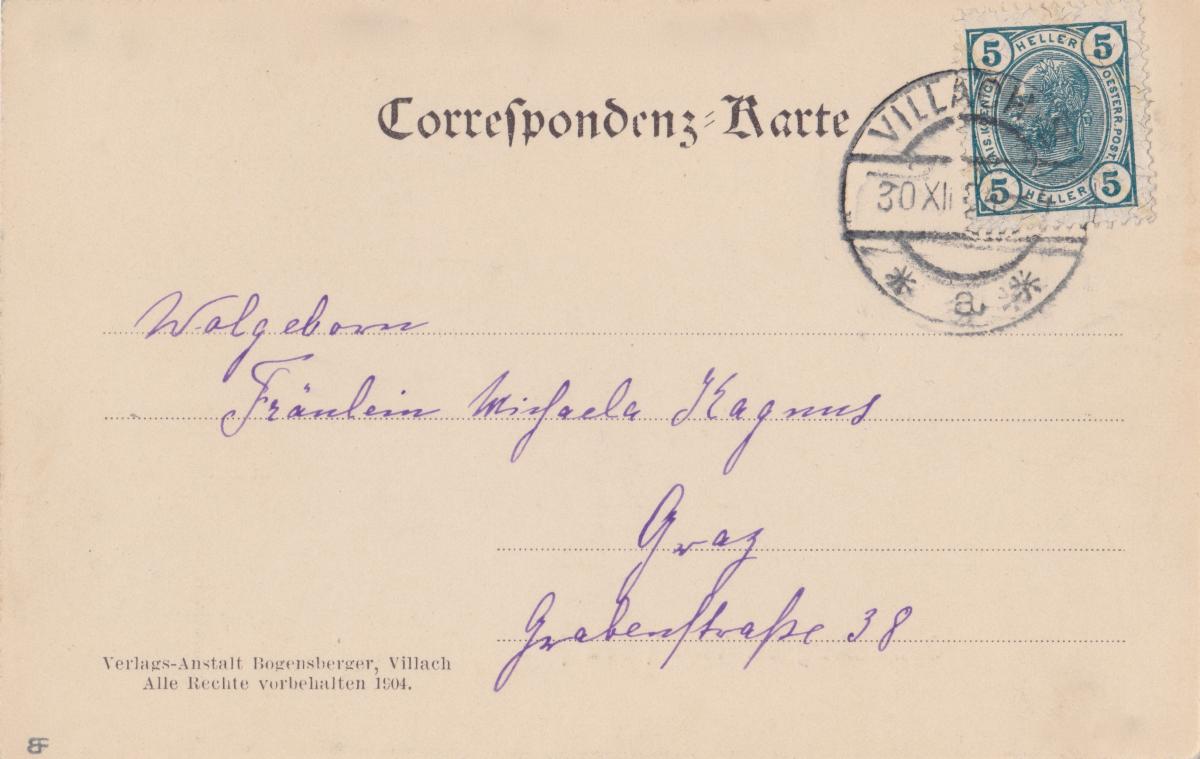 Correspondenz-Karte
VILLACH
30 XII
a
5 HELLER 5
KAIS. KOENIGL.
OESTERR. POST.
5 HELLER 5
Wolgeborn
Fräulein Michaela Kagnus
Graz
Grabenstraße 38
Verlags-Anstalt Bogensberger, Villach
Alle Rechte vorbehalten 1904.